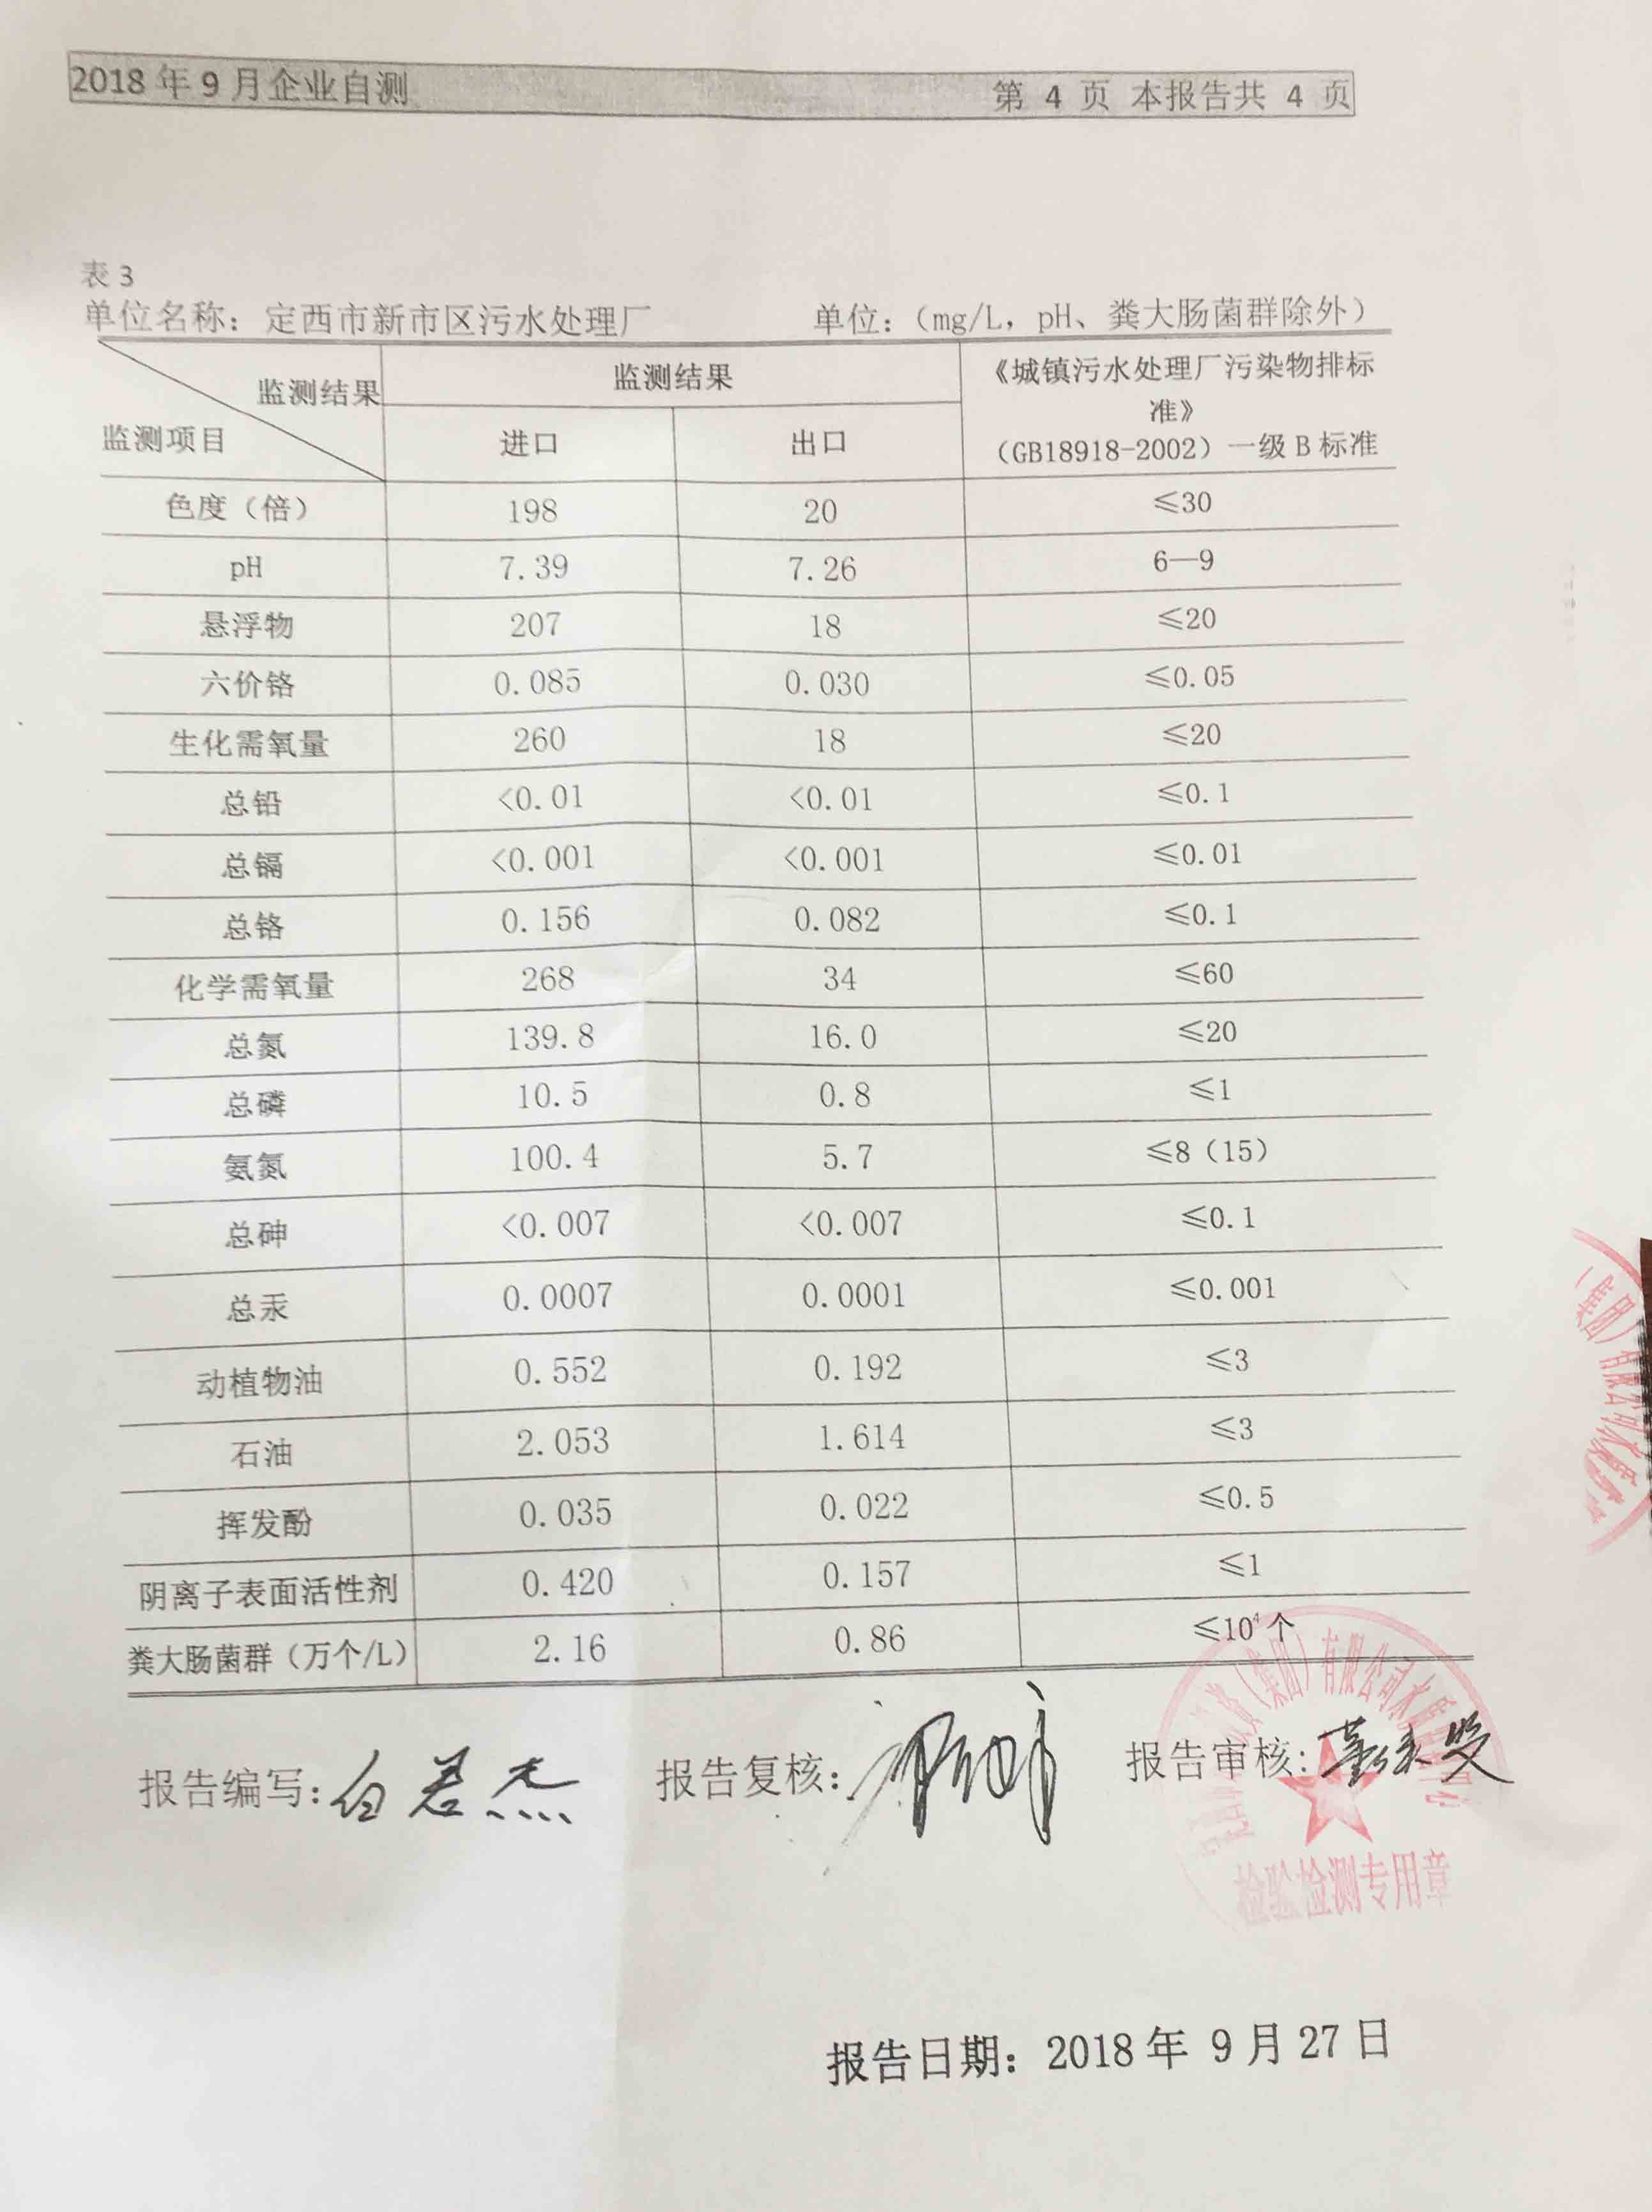 2018 年 9 月企业自测 第 4 页 本报告共 4 页
表 3
单位名称：定西市新市区污水处理厂 单位：（mg/L，pH、粪大肠菌群除外）
监测结果 监测结果 《城镇污水处理厂污染物排标
准》
监测项目 进口 出口 （GB18918-2002）一级 B 标准
色度（倍） 198 20 ≤30
pH 7.39 7.26 6—9
悬浮物 207 18 ≤20
六价铬 0.085 0.030 ≤0.05
生化需氧量 260 18 ≤20
总铅 <0.01 <0.01 ≤0.1
总镉 <0.001 <0.001 ≤0.01
总铬 0.156 0.082 ≤0.1
化学需氧量 268 34 ≤60
总氮 139.8 16.0 ≤20
总磷 10.5 0.8 ≤1
氨氮 100.4 5.7 ≤8（15）
总砷 <0.007 <0.007 ≤0.1
总汞 0.0007 0.0001 ≤0.001
动植物油 0.552 0.192 ≤3
石油 2.053 1.614 ≤3
挥发酚 0.035 0.022 ≤0.5
阴离子表面活性剂 0.420 0.157 ≤1
粪大肠菌群（万个/L） 2.16 0.86 ≤10⁴个
报告编写：白君杰 报告复核： 报告审核：
（集团）有限公司水质
检验检测专用章
（集团）有限公司水质
报告日期：2018 年 9 月 27 日